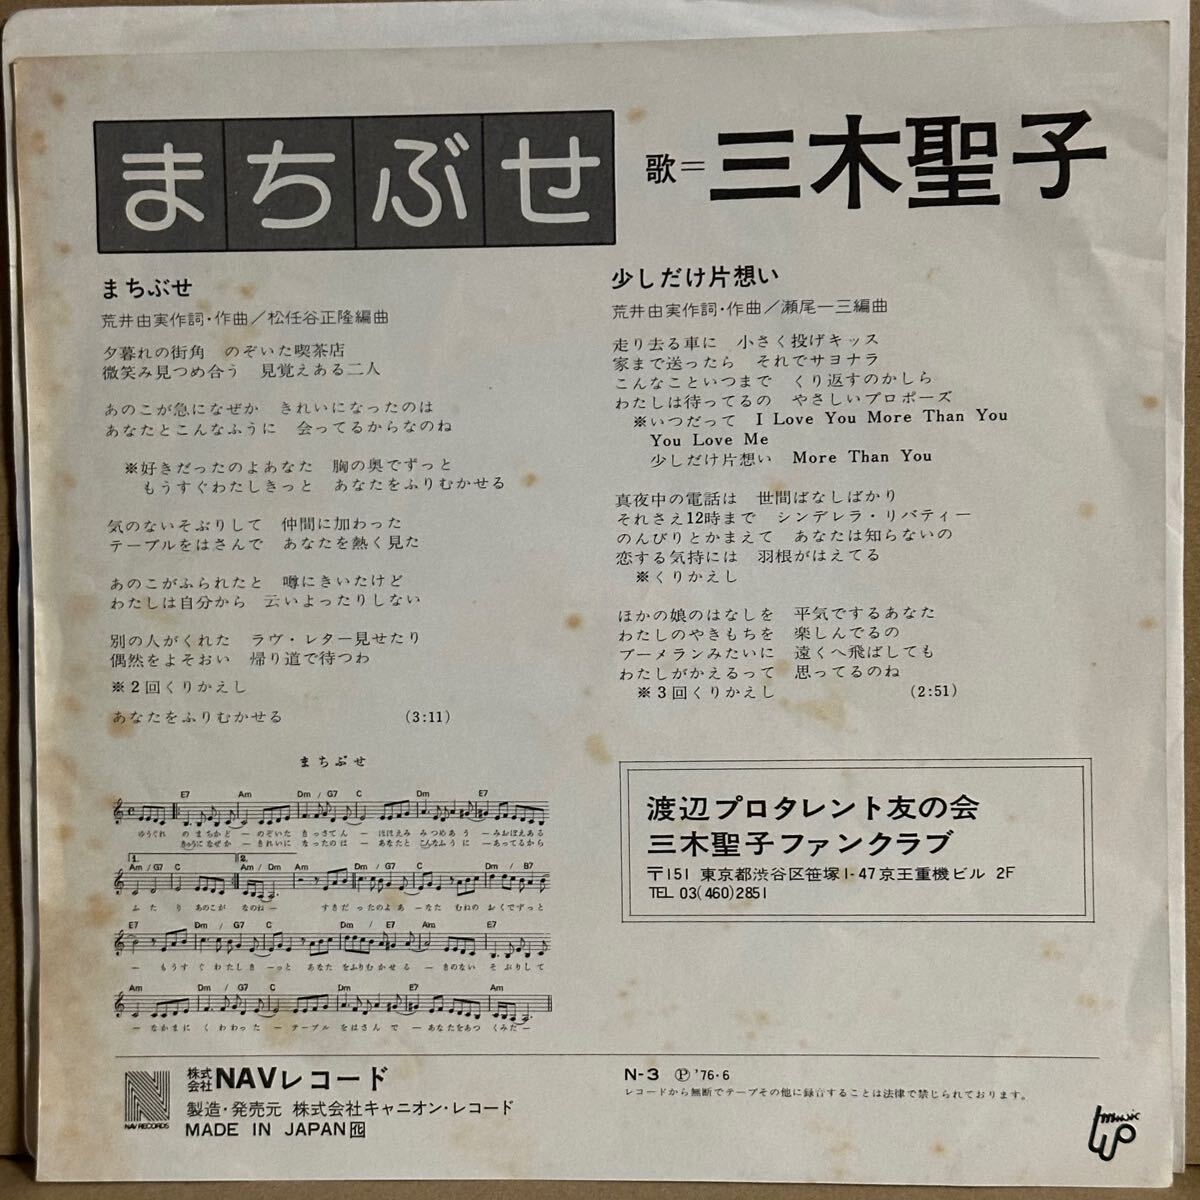 まちぶせ 歌=三木聖子
まちぶせ
荒井由実作詞・作曲／松任谷正隆編曲
夕暮れの街角　のぞいた喫茶店
微笑み見つめ合う　見覚えある二人
あのこが急になぜか　きれいになったのは
あなたとこんなふうに　会ってるからなのね
※好きだったのよあなた　胸の奥でずっと
もうすぐわたしきっと　あなたをふりむかせる
気のないそぶりして　仲間に加わった
テーブルをはさんで　あなたを熱く見た
あのこがふられたと　噂にきいたけど
わたしは自分から　云いよったりしない
別の人がくれた　ラヴ・レター見せたり
偶然をよそおい　帰り道で待つわ
※2回くりかえし
あなたをふりむかせる　(3:11)
少しだけ片想い
荒井由実作詞・作曲／瀬尾一三編曲
走り去る車に　小さく投げキッス
家まで送ったら　それでサヨナラ
こんなこといつまで　くり返すのかしら
わたしは待ってるの　やさしいプロポーズ
※いつだって　I Love You More Than You
You Love Me
少しだけ片想い　More Than You
真夜中の電話は　世間ばなしばかり
それさえ12時まで　シンデレラ・リバティー
のんびりとかまえて　あなたは知らないの
恋する気持には　羽根がはえてる
※くりかえし
ほかの娘のはなしを　平気でするあなた
わたしのやきもちを　楽しんでるの
ブーメランみたいに　遠くへ飛ばしても
わたしがかえるって　思ってるのね
※3回くりかえし　(2:51)
まちぶせ
E7 Am Dm / G7 C Dm E7
ゆうぐれ のまちかど－のぞいた きっさてん－ほほえみ みつめあう －みおぼえある
きゅうになぜか －きれいに なったのは －あなたと こんなふうに －あってるから
1. 2.
Am / G7 C Am / Dm Am Am / G7 C Dm / B7
ふたり あのこが なのね－ すきだったのよあ－なた むねの おくでずっと
E7 Dm / G7 C Am Dm / E7 Am E7
－もうすぐわたしき－っと あなた をふりむかせる －きのない そぶりして
Am Dm / G7 C Dm E7 Am
－なかまに くわわった －テーブル をはさんで －あなたをあつ くみた－
渡辺プロタレント友の会
三木聖子ファンクラブ
〒151 東京都渋谷区笹塚1-47京王重機ビル 2F
TEL 03(460)2851
NAV RECORDS
株式会社NAVレコード
製造・発売元 株式会社キャニオン・レコード
MADE IN JAPAN
N-3 Ⓟ '76・6
レコードから無断でテープその他に録音することは法律で禁じられております。
music